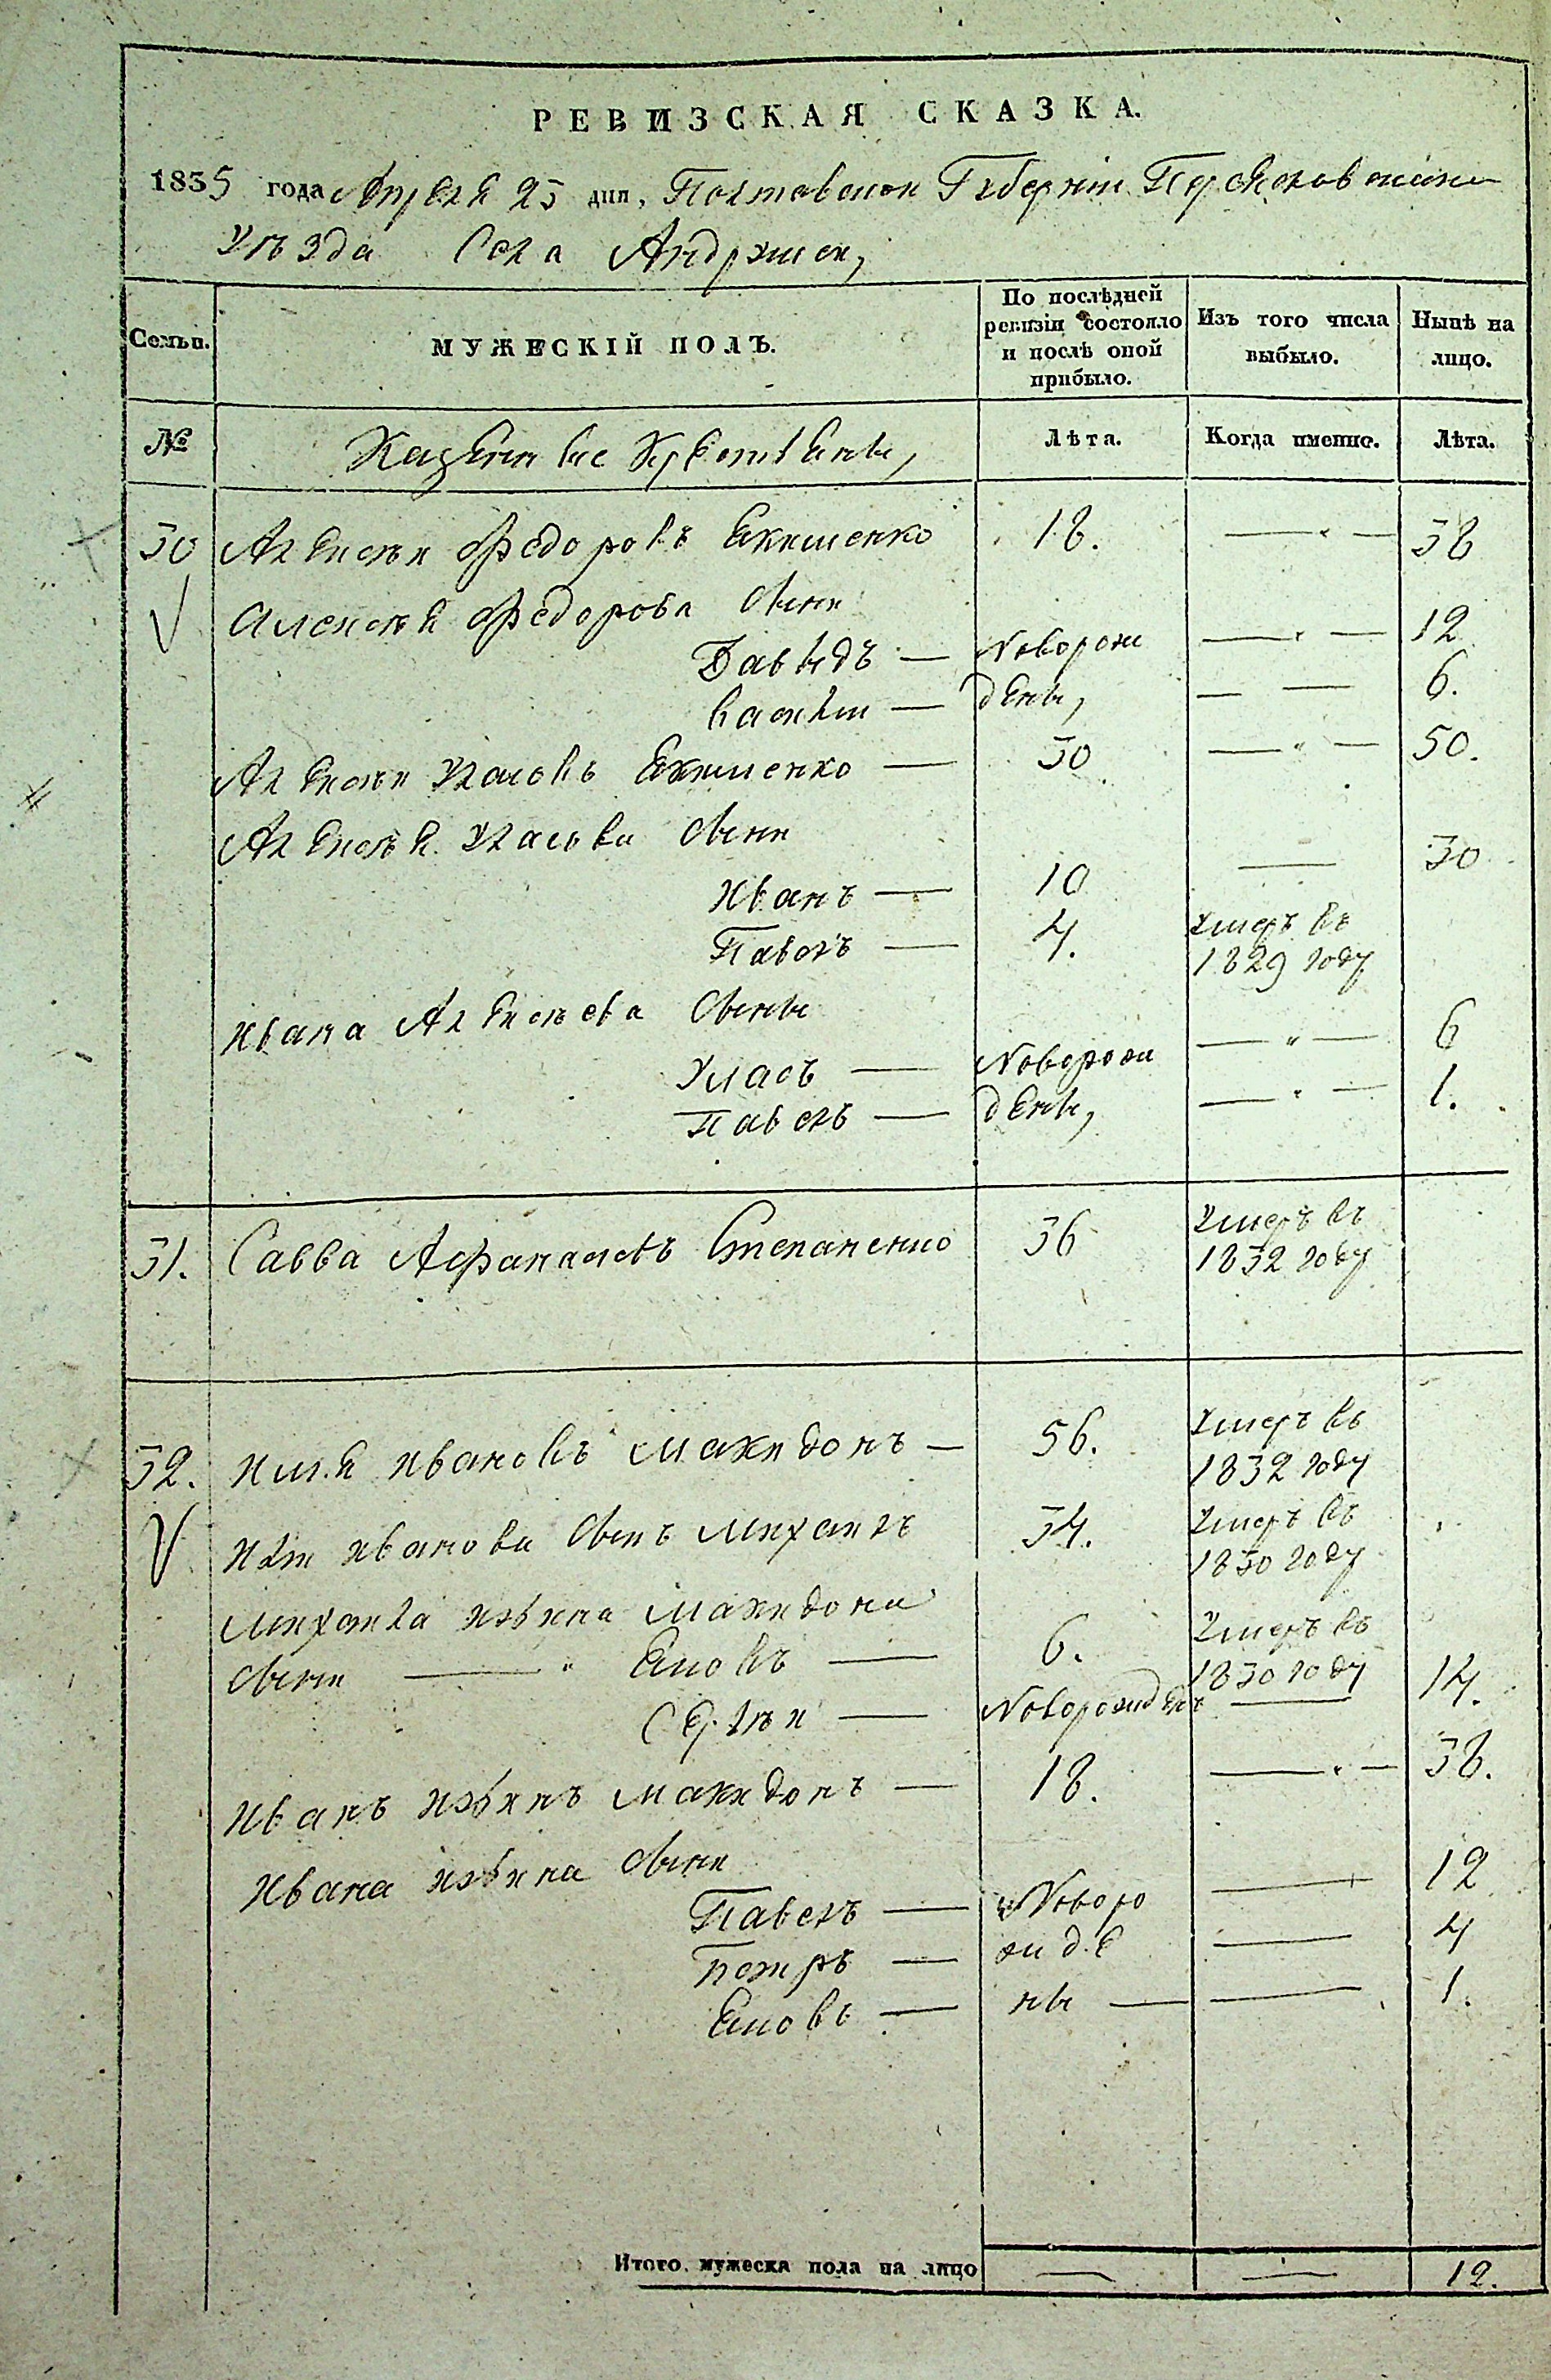 РЕВИЗСКАЯ СКАЗКА.
1835 года Апреля 25 дня, Полтавской Губернии Переяславского
Уѣзда Села Андруши,
Семьи. МУЖЕСКІЙ ПОЛЪ. По послѣдней ревизіи состояло и послѣ оной прибыло. Изъ того числа выбыло. Нынѣ на лицо.
№ Казенные Крестьяны, Лѣта. Когда имянно. Лѣта.
30 Алексѣй Федоровъ Екименко 18. — " — 38
Алексѣя Федорова сыни
Давыдъ — Новорож — " — 12
Василiй — дены, — — 6.
Алексѣй Уласовъ Екименко — 30 — " — 50.
Алексѣя Уласова сыни
Иванъ — 10 — 30
Павелъ — 4. умеръ въ
1829 году
Ивана Алексѣева сыны
Уласъ — Новорож — " — 6
Павелъ — дены, — " — 1.
31. Савва Афанасьевъ Степаненко 36 умеръ въ
1832 году
32. Илья Ивановъ Макидонъ — 56. умеръ въ
1832 году
Ильи Иванова сынъ Михаилъ 34. умеръ въ
1830 году
Михаила Ильина Макидона
сыни — " Яковъ — 6. умеръ въ
1830 году
Сергѣй — Новорожденъ — 14.
Иванъ Ильинъ Макидонъ — 18. — " — 38.
Ивана Ильина сыни
Павелъ — Новоро — 12
Петръ — жде — 4
Яковъ — ны — — 1.
Итого мужеска пола на лицо — — 12.